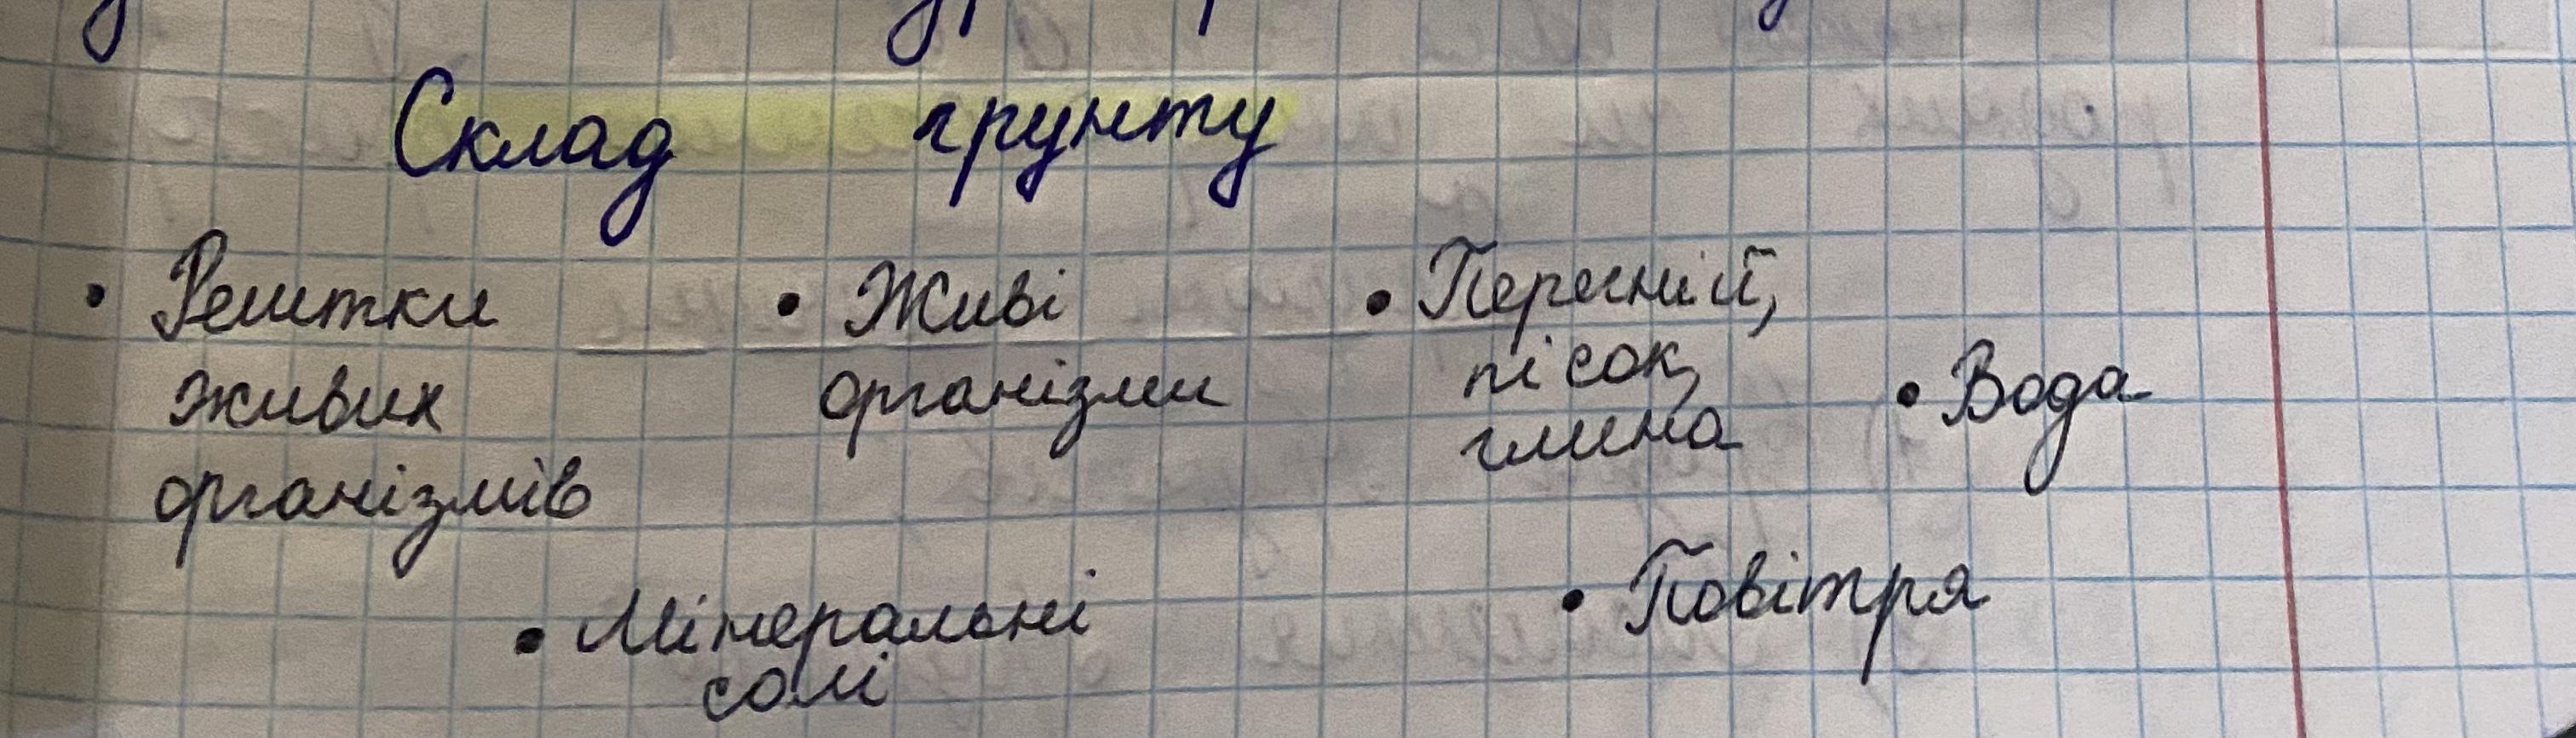 Склад грунту
• Рештки
живих
організмів
• Живі
організми
• Перегній,
пісок,
глина
• Вода
• Мінеральні
солі
• Повітря